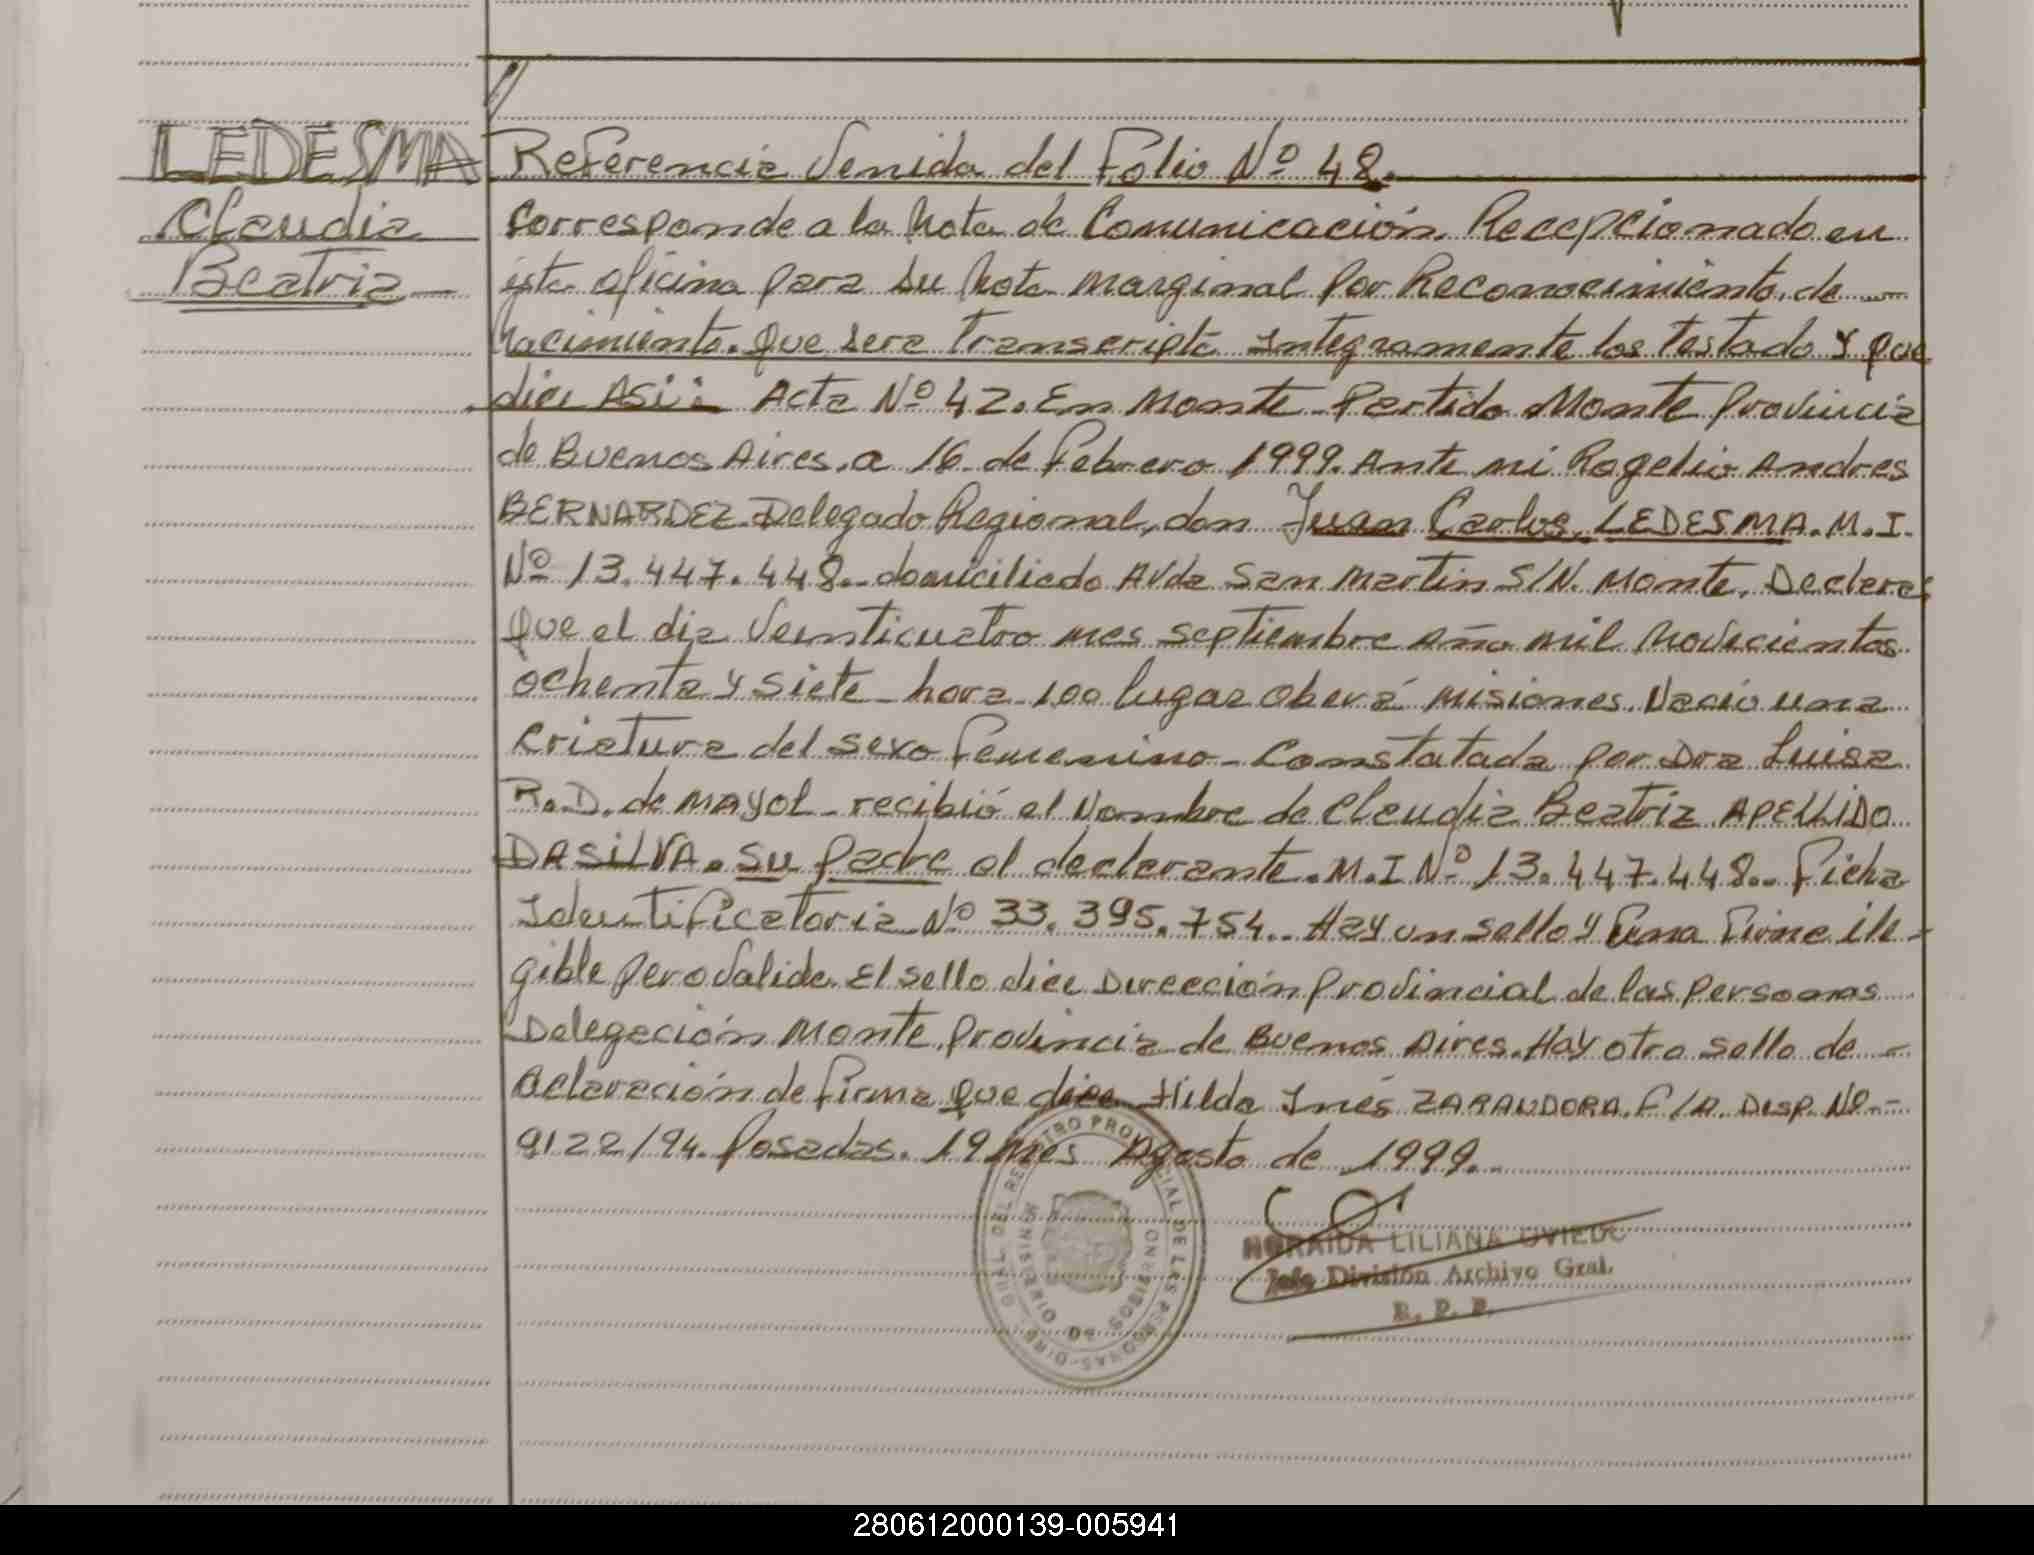 LEDESMA
Claudia
Beatriz
Referencia Venida del Folio Nº 48.
Corresponde a la Nota de Comunicación. Recepcionado en
ésta oficina para su Nota marginal por Reconocimiento. de
Nacimiento. Que sera transcripta Integramente los testado y que
dice Asi: Acta Nº 42. En Monte Partido Monte Provincia
de Buenos Aires. a 16 de Febrero 1999. Ante mi Rogelio Andres
BERNARDEZ Delegado Regional, don Juan Carlos LEDESMA. M.I.
Nº 13.447.448.. domiciliado AVda San Martin S/N. Monte. Declara
Que el dia Veinticuatro mes septiembre Año mil Novecientos
ochenta y siete hora 1.00 lugar Oberá Misiones. Nació una
criatura del sexo femenino - Constatada por Dra Luisa
R.D. de MAYOL - recibió el Nombre de Claudia Beatriz APELLIDO
DASILVA. su padre el declarante. M.I Nº 13.447.448.. Ficha
Identificatoria Nº 33.395.754.. Hay un sello y una firma ile-
gible pero valida. El sello dice Dirección Provincial de las personas
Delegación Monte. Provincia de Buenos Aires. Hay otro sello de -
Aclaración de firma que dice Hilda Inés ZARANDORA. F/A. DISP. Nº.-
9122/94. Posadas. 19 mes Agosto de 1999..
DIR. GRAL. DEL REGISTRO PROVINCIAL DE LAS PERSONAS
NORAIDA LILIANA OVIEDO
Jefe División Archivo Gral.
R. P. P.
280612000139-005941